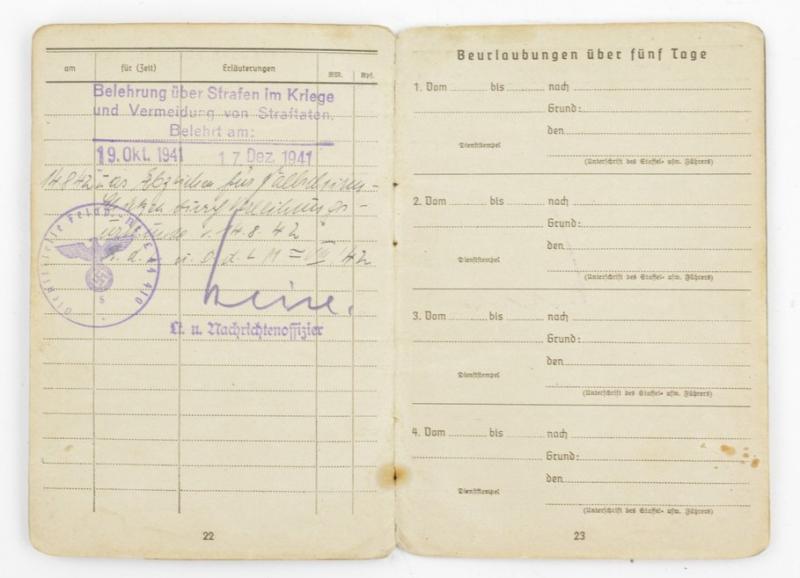 am für (Zeit) Erläuterungen RM. Rpf.
Belehrung über Strafen im Kriege
und Vermeidung von Straftaten.
Belehrt am:
19. Okt. 1941 17 Dez. 1941
14.8.42 Abzeichen für Fallschirm-
14.8.42
42
Dienststelle Feldp.
Lt. u. Nachrichtenoffizier
22
Beurlaubungen über fünf Tage
1. Vom bis nach
Grund:
den
Dienststempel
(Unterschrift des Staffel- usw. Führers)
2. Vom bis nach
Grund:
den
Dienststempel
(Unterschrift des Staffel- usw. Führers)
3. Vom bis nach
Grund:
den
Dienststempel
(Unterschrift des Staffel- usw. Führers)
4. Vom bis nach
Grund:
den
Dienststempel
(Unterschrift des Staffel- usw. Führers)
23